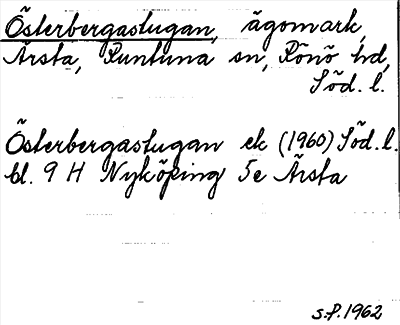 Österbergastugan, ägomark,
Ärsta, Runtuna sn, Rönö hd,
Söd. l.
Österbergastugan ek (1960) Söd. l.
bl. 9 H Nyköping 5e Ärsta
s.f. 1962